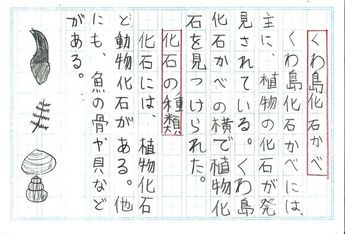 くわ島化石かべ
くわ島化石かべには、
主に、植物の化石が発
見されている。くわ島
化石かべの横で植物化
石を見つけられた。
化石の種類
化石には、植物化石
と動物化石がある。他
にも、魚の骨や貝など
がある。